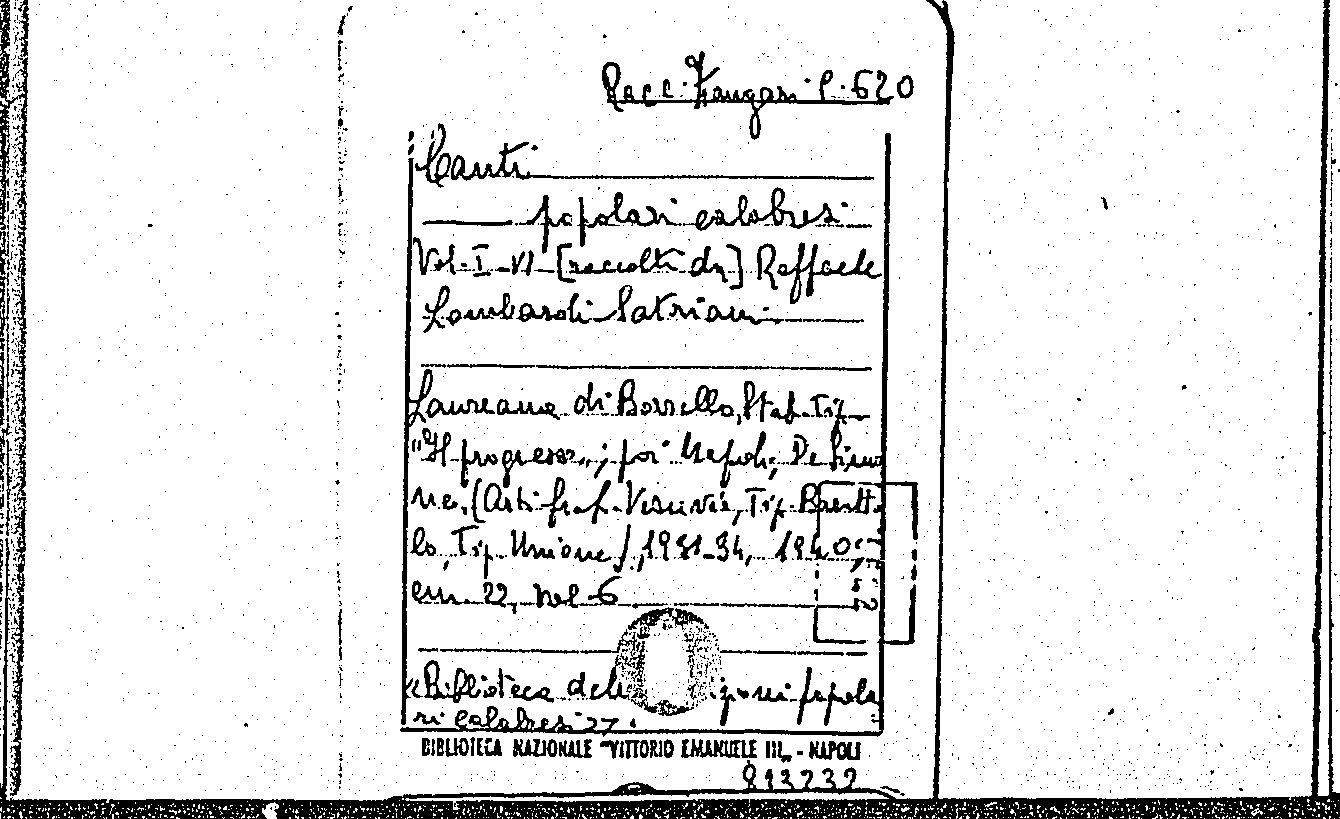 Racc. C. 620
Canti
popolari calabresi
Vol. I-VI [raccolti da] Raffaele
Lombardi Satriani
Laureana di Borrello, Stab. Tip.
"Il progresso"; poi Napoli, De Simo
ne, (Arti graf. Vesuvio, Tip.
lo, Tip. Unione), 1931-34, 1940,
cm. 22, vol. 6
«Biblioteca delle popola
ri calabresi»
BIBLIOTECA NAZIONALE "VITTORIO EMANUELE III" - NAPOLI
813232